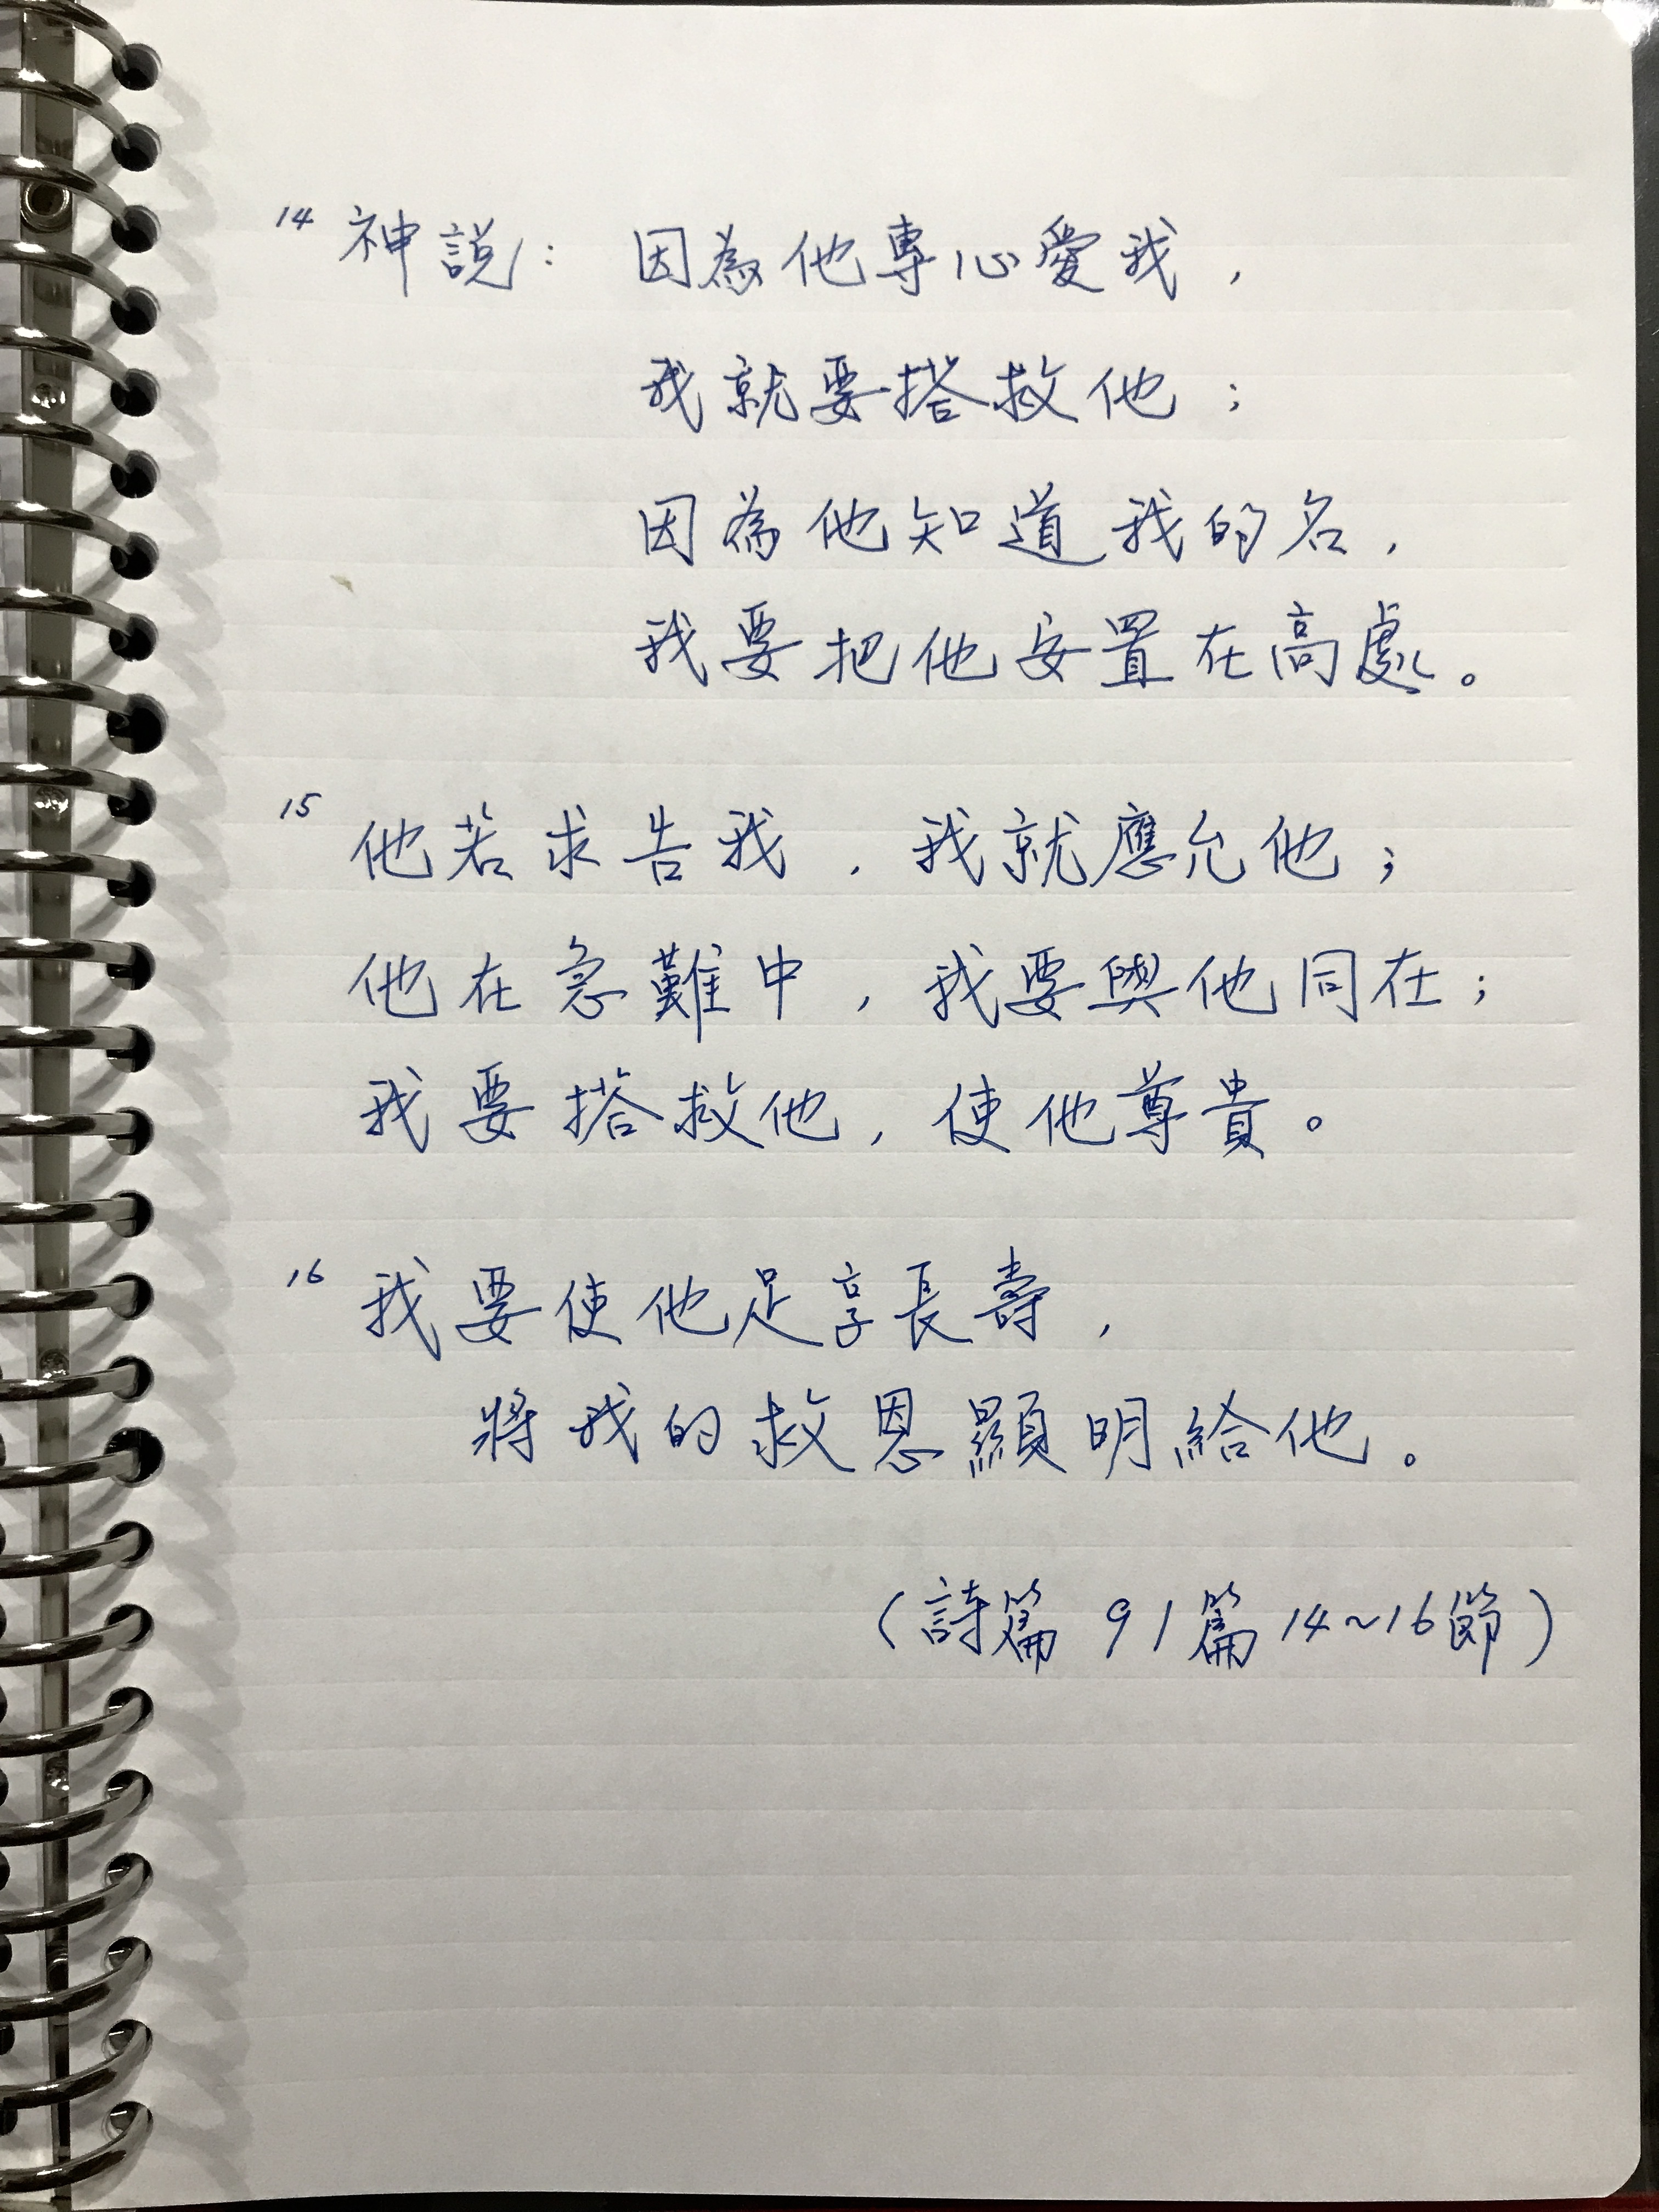 14 神說：因為他專心愛我，
我就要搭救他；
因為他知道我的名，
我要把他安置在高處。
15 他若求告我，我就應允他；
他在急難中，我要與他同在；
我要搭救他，使他尊貴。
16 我要使他足享長壽，
將我的救恩顯明給他。
（詩篇 91篇 14~16節）